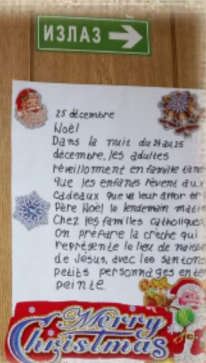 ИЗЛАЗ
25 décembre
Noël
Dans la nuit du 24 au 25
décembre, les adultes
réveillonnent en famille
que les enfants rêvent aux
cadeaux que va leur
Père Noël le lendemain
Chez les familles catholiques,
on prépare la crèche qui
représente le lieu de
de Jésus, avec les santons
petits personnages en
peinte.
Merry
Christmas